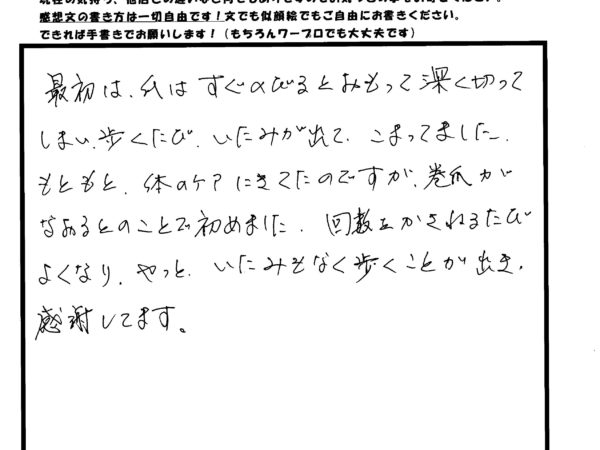 感想文の書き方は一切自由です!文でも似顔絵でもご自由にお書きください。
できれば手書きでお願いします!(もちろんワープロでも大丈夫です)
最初は、爪はすぐのびるとおもって深く切って
しまい、歩くたび、いたみが出て、こまってました。
もともと、体のケアにきてたのですが、巻爪が
なおるとのことで初めました。回数をかさねるたび
よくなり、やっと、いたみもなく歩くことが出き、
感謝してます。